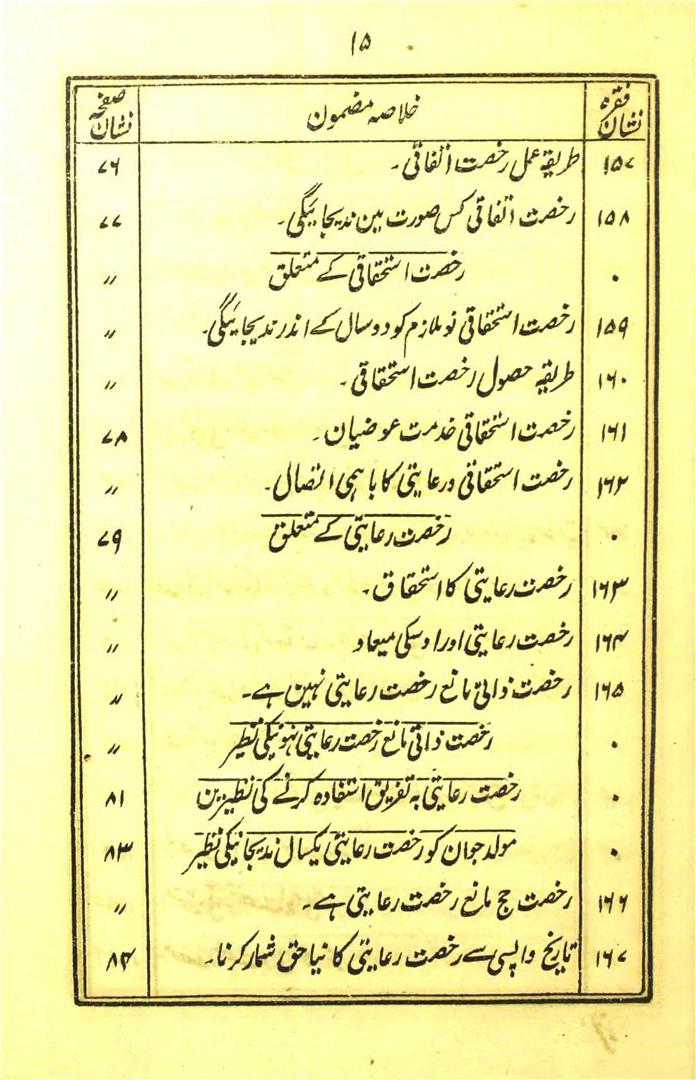 ۱۵
نشان فقرہ خلاصہ مضمون نشان صفحہ
۱۵۷ طریقۂ عمل رخصت اتفاقی۔ ۷۶
۱۵۸ رخصت اتفاقی کس صورت مین ندیجائیگی۔ ۷۷
۰ رخصت استحقاقی کے متعلق ״
۱۵۹ رخصت استحقاقی نو ملازم کو دو سال کے اندر ندیجائیگی۔ ״
۱۶۰ طریقہ حصول رخصت استحقاقی۔ ״
۱۶۱ رخصت استحقاقی خدمت عوضیان۔ ۷۸
۱۶۲ رخصت استحقاقی ورعایتی کا باہمی اتصال۔ ״
۰ رخصت رعایتی کے متعلق ۷۹
۱۶۳ رخصت رعایتی کا استحقاق۔ ״
۱۶۴ رخصت رعایتی اور اوسکی میعاد ״
۱۶۵ رخصت ذاتی مانع رخصت رعایتی نہین ہے۔ ״
۰ رخصت ذاتی مانع رخصت رعایتی نہونیکی نظیر ״
۰ رخصت رعایتی بہ تفریق استفادہ کرنے کی نظیرین ۸۱
۰ مولد جوان کو رخصت رعایتی یکسال ندیجانیکی نظیر ۸۳
۱۶۶ رخصت حج مانع رخصت رعایتی ہے۔ ״
۱۶۷ تاریخ واپسی سے رخصت رعایتی کا نیا حق شمار کرنا۔ ۸۴